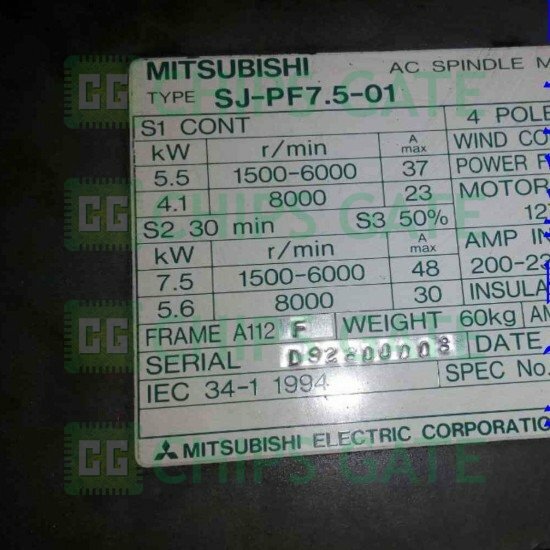 MITSUBISHI AC SPINDLE M
TYPE SJ-PF7.5-01
S1 CONT 4 POLE
kW r/min A max WIND CO
5.5 1500-6000 37 POWER F
4.1 8000 23 MOTOR
S2 30 min S3 50% 12
kW r/min A max AMP IN
7.5 1500-6000 48 200-23
5.6 8000 30 INSULA
FRAME A112 F WEIGHT 60kg AM
SERIAL D92800008 DATE
IEC 34-1 1994 SPEC No.
MITSUBISHI ELECTRIC CORPORATIO
CG CHIPS GATE
CG CHIPS GATE
CG CHIPS GATE
CG CHIPS GATE